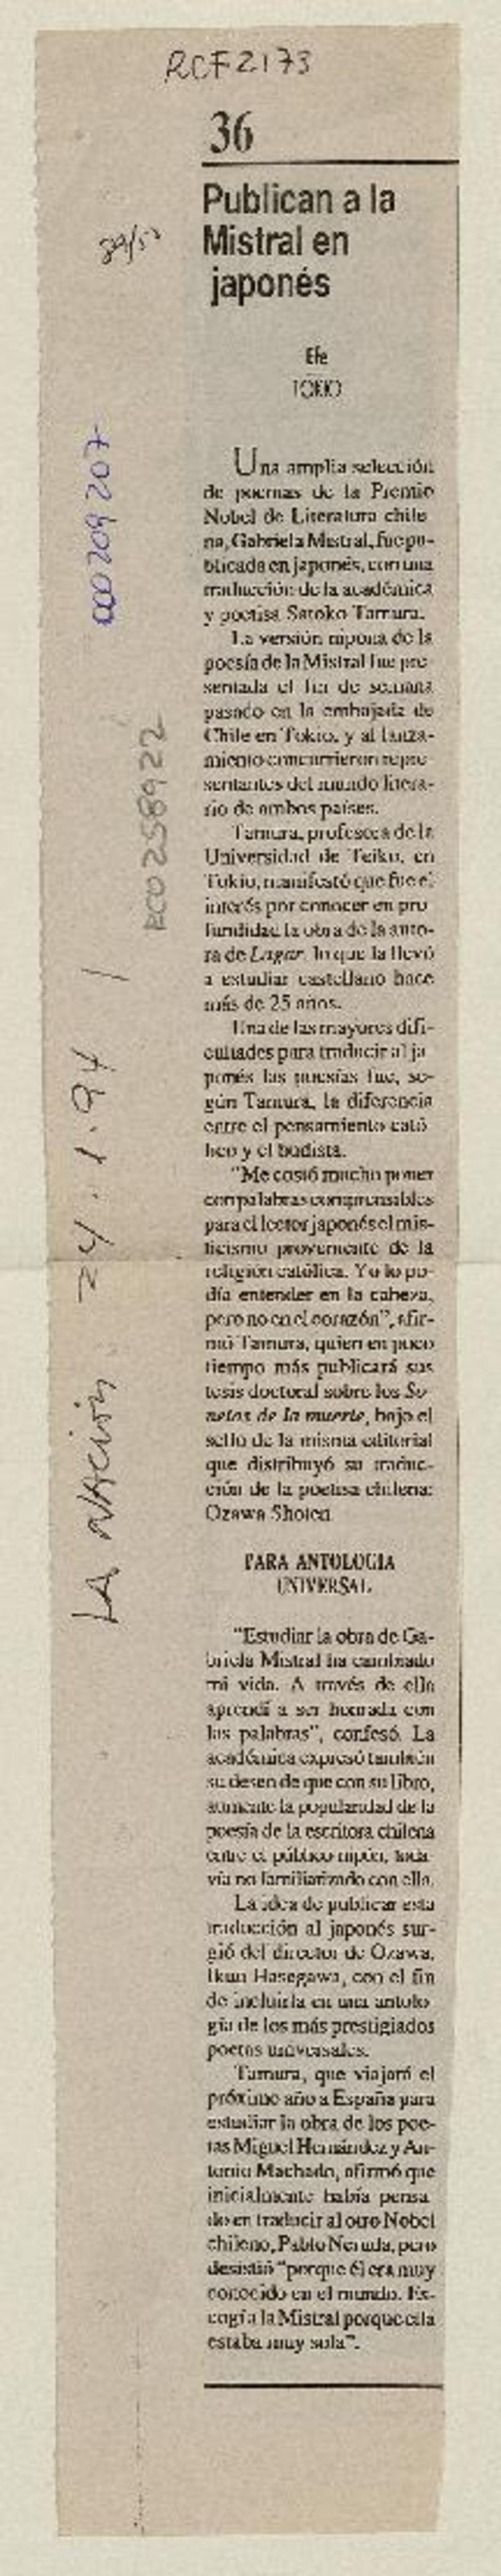 RCF2173
36
Publican a la
Mistral en
japonés
Efe
TOKIO
000209207
000258922
LA NACIÓN 24.1.94
Una amplia selección
de poemas de la Premio
Nobel de Literatura chile-
na, Gabriela Mistral, fue pu-
blicada en japonés, con una
traducción de la académica
y poetisa Satoko Tamura.
La versión nipona de la
poesía de la Mistral fue pre-
sentada el fin de semana
pasado en la embajada de
Chile en Tokio, y al lanza-
miento concurrieron repre-
sentantes del mundo litera-
rio de ambos países.
Tamura, profesora de la
Universidad de Teiko, en
Tokio, manifestó que fue el
interés por conocer en pro-
fundidad la obra de la auto-
ra de Lagar, lo que la llevó
a estudiar castellano hace
más de 25 años.
Una de las mayores difi-
cultades para traducir al ja-
ponés las poesías fue, se-
gún Tamura, la diferencia
entre el pensamiento cató-
lico y el budista.
"Me costó mucho poner
con palabras comprensibles
para el lector japonés el mis-
ticismo proveniente de la
religión católica. Yo lo po-
día entender en la cabeza,
pero no en el corazón", afir-
mó Tamura, quien en poco
tiempo más publicará sus
tesis doctoral sobre los So-
netos de la muerte, bajo el
sello de la misma editorial
que distribuyó su traduc-
ción de la poetisa chilena:
Ozawa Shoten.
PARA ANTOLOGIA
UNIVERSAL
"Estudiar la obra de Ga-
briela Mistral ha cambiado
mi vida. A través de ella
aprendí a ser honrada con
las palabras", confesó. La
académica expresó también
su deseo de que con su libro,
aumente la popularidad de la
poesía de la escritora chilena
entre el público nipón, toda-
vía no familiarizado con ella.
La idea de publicar esta
traducción al japonés sur-
gió del director de Ozawa,
Hasegawa, con el fin
de incluirla en una antolo-
gía de los más prestigiados
poetas universales.
Tamura, que viajará el
próximo año a España para
estudiar la obra de los poe-
tas Miguel Hernández y An-
tonio Machado, afirmó que
inicialmente había pensa-
do en traducir al otro Nobel
chileno, Pablo Neruda, pero
desistió "porque él era muy
conocido en el mundo. Es-
cogí a la Mistral porque ella
estaba muy sola".